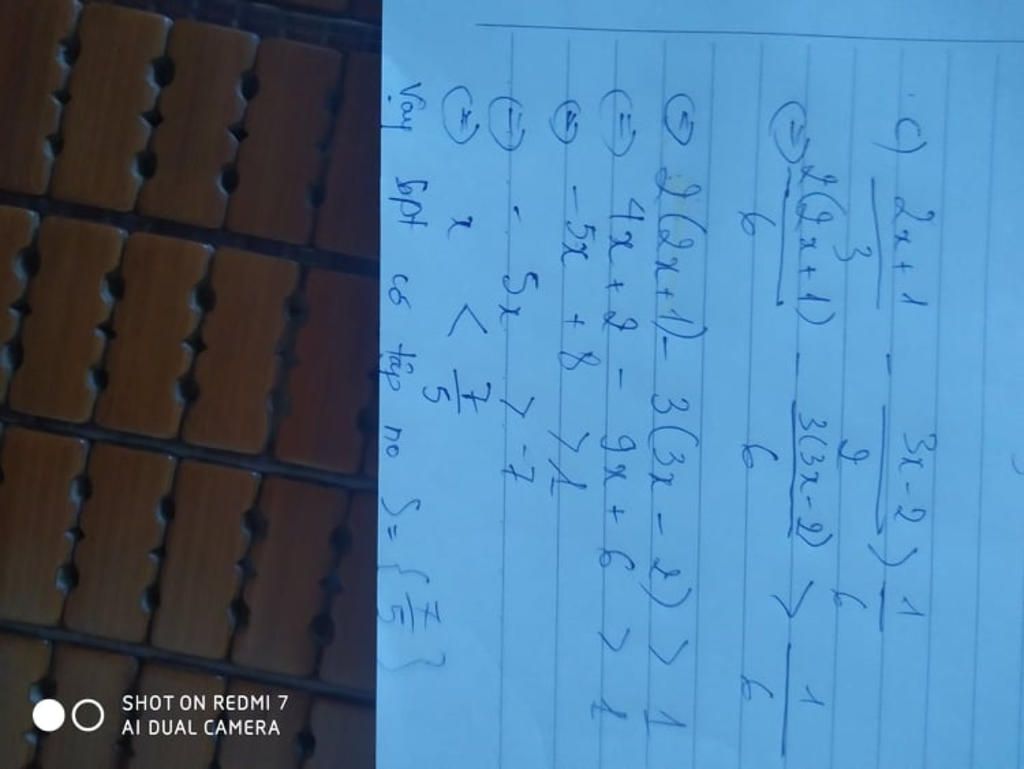 c) \frac{2x+1}{3} - \frac{3x-2}{2} > \frac{1}{6}
⇔ \frac{2(2x+1)}{6} - \frac{3(3x-2)}{6} > \frac{1}{6}
⇔ 2(2x+1) - 3(3x-2) > 1
⇔ 4x+2 - 9x+6 > 1
⇔ -5x + 8 > 1
⇔ - 5x > -7
⇔ x < \frac{7}{5}
Vậy bpt có tập no S = {\frac{7}{5}}
SHOT ON REDMI 7
AI DUAL CAMERA